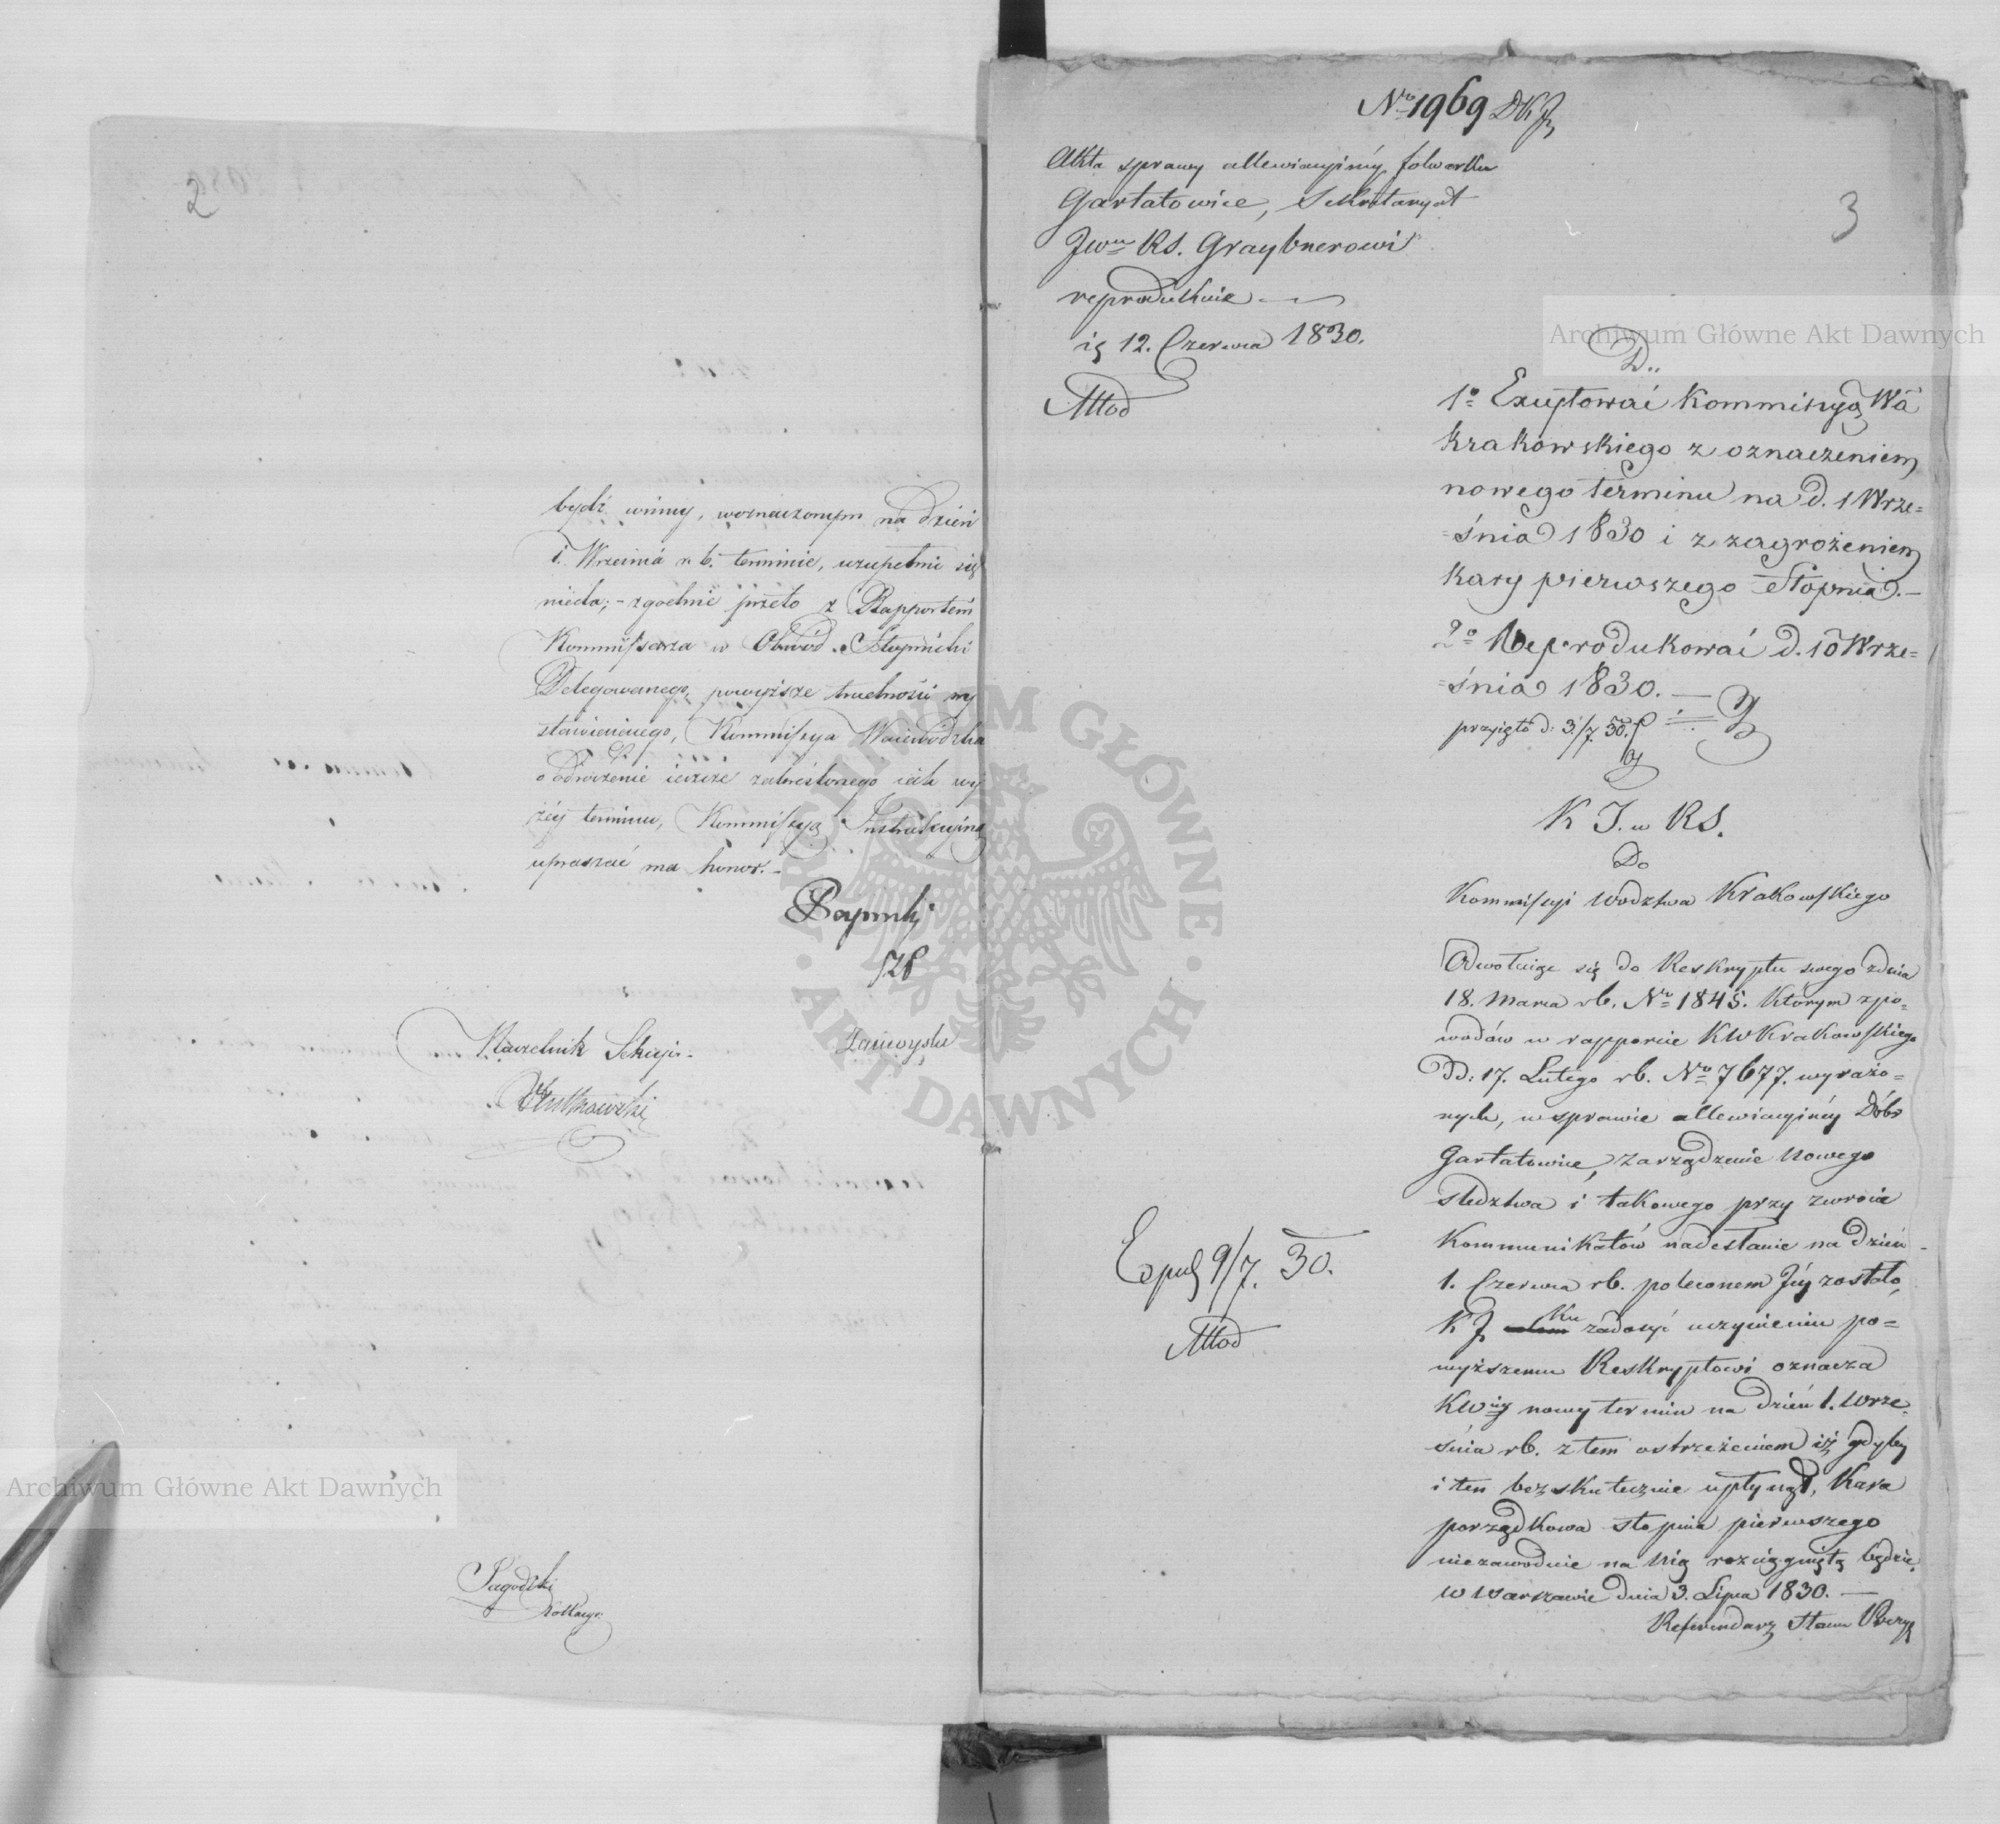 2
bydź winny, w oznaczonym na dzień
1. Września r. b. terminie, uzupełnić się
nieda; - zgodnie przeto z Rapportem
Kommissarza w Obwód Stopnicki
Delegowanego, powyższe trudności wy
stawiaiącego, Kommissya Woiewódzka
o odroczenie ieszcze zakreślonego iak wy
żey terminu, Kommissyą Instrukcyiną
upraszać ma honor. -
Naczelnik Sekcyi.
Archiwum Główne Akt Dawnych
No 1969 DKJ
3
Akta sprawy allewiacyiney folwarku
Gartatowice, Sekretaryat
Jwu RS. Graybnerowi
reprodukuie
ig 12. Czerwca 1830.
Młod
Archiwum Główne Akt Dawnych
D..
1o Excytować Kommissyą Wa
Krakowskiego z oznaczeniem
nowego terminu na d. 1 Wrze=
=śnia 1830 i z zagrożeniem
kary pierwszego Stopnia. -
2o Reprodukować d. 10 Wrze=
=śnia 1830. -
przyięto d: 3/7. 30.
K J. w RS.
Do
Kommissyi Wodztwa Krakowskiego
Odwołuiąc się do Reskryptu swego z dnia
18. Marca rb. No 1845. którym z po=
wodów w rapporcie KWKrakowskiego
dd: 17. Lutego rb. No 7677. wyrażo=
nych, w sprawie allewiacyiney Dóbr
Gartatowice, zarządzenie nowego
sledztwa i takowego przy zwrocie
Kommunikatów nadesłanie na dzień
1. Czerwca rb. poleconem Jey zostało,
KJ ku zadosyć uczynieniu po=
wyższemu Reskryptowi oznacza
KWiey nowy termin na dzień 1. Wrze=
śnia rb. z tem ostrzeżeniem iż gdyby
i ten bezskutecznie upłynął, Kara
porządkowa stopnia pierwszego
niezawodnie na nią rozciągniętą będzie.
w Warszawie dnia 3. Lipca 1830. -
Referendarz Stanu
Exped 9/7. 30.
Młod
ARCHIWUM GŁÓWNE · AKT DAWNYCH ·